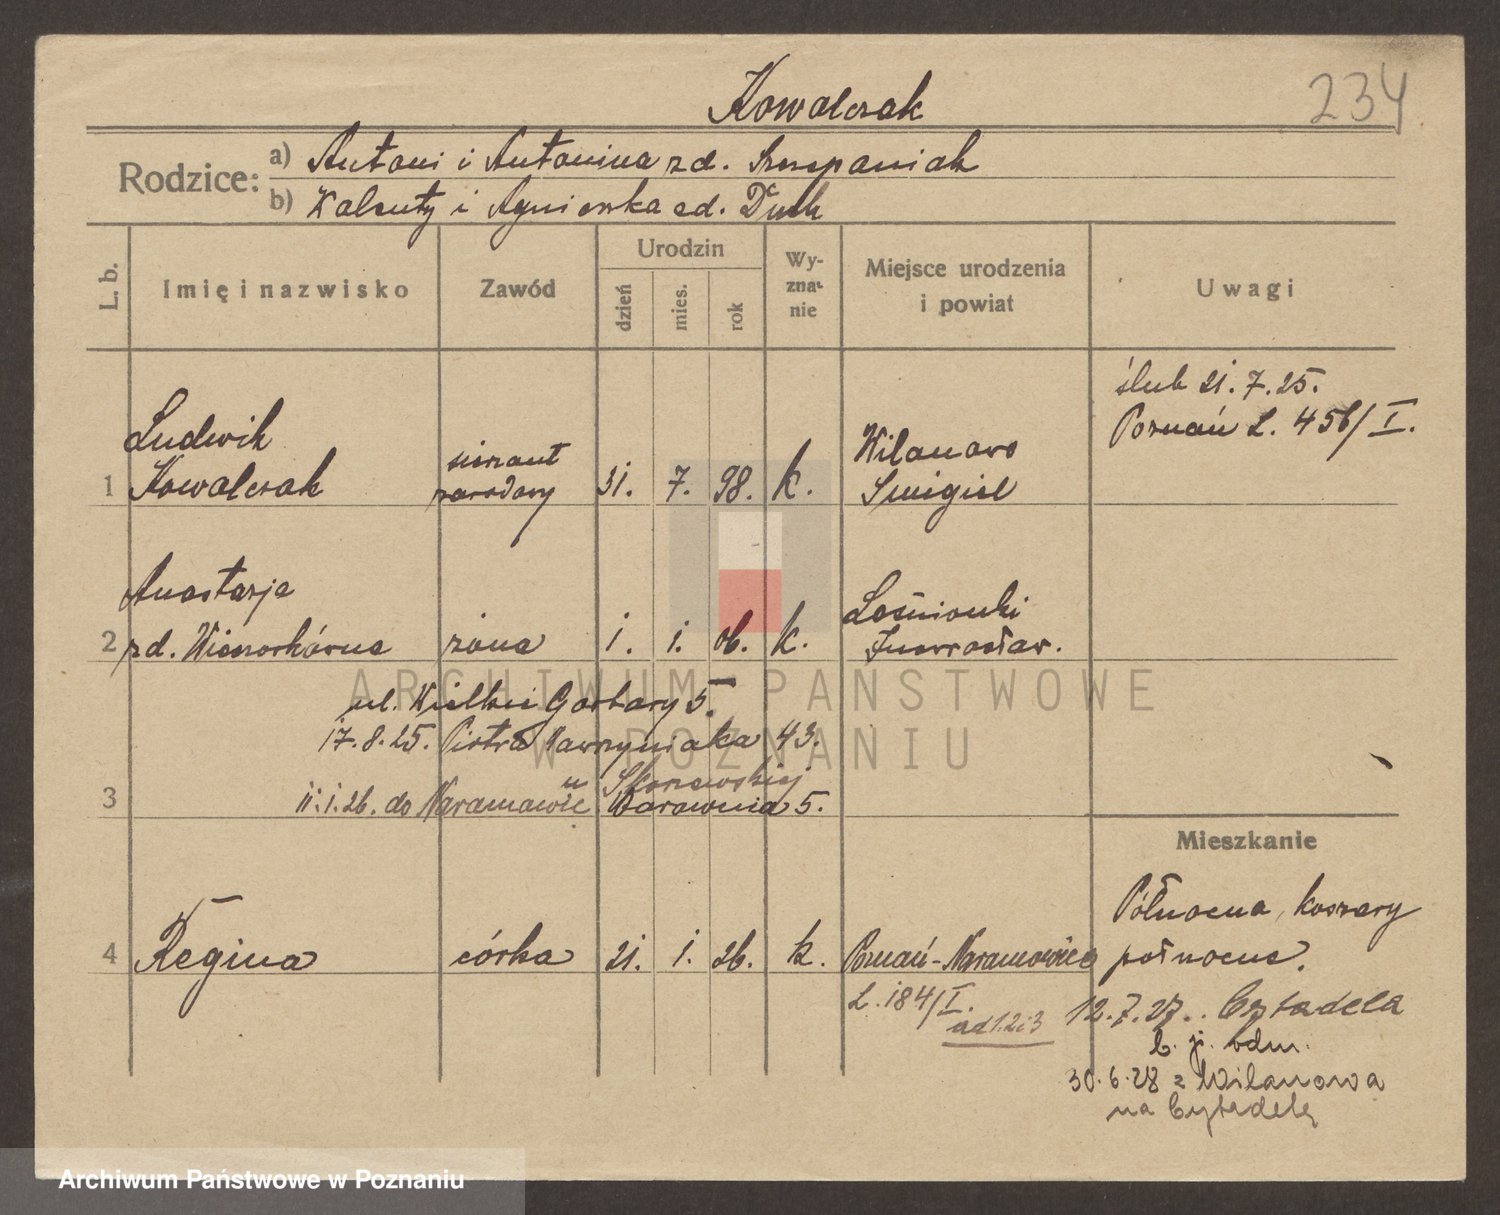 Kowalczak
234
Rodzice:
a) Antoni i Antonina zd. Szczepaniak
b) Walenty i Agnieszka zd. Duch
L. b.
Imię i nazwisko
Zawód
Urodzin
dzień
mies.
rok
Wy-
zna-
nie
Miejsce urodzenia
i powiat
Uwagi
ślub 21. 7. 25.
Poznań L. 456/I.
Ludwik
1 Kowalczak sierżant zawodowy 31. 7. 98. k. Wilanowo
Śmigiel
Anastazja
2 zd. Wieczorkówna żona 1. 1. 06. k.
Inowrocław.
ul. Wielkie Garbary 5.
17. 8. 25. Piotra Wawrzyniaka 43.
3 11. 1. 26. do Naramowic 5.
Mieszkanie
Północna, koszary
4 Regina córka 21. 1. 26. k. Poznań-Naramowice północne.
L. 184/I.
ad 1.2i3
12. 7. 27. Cytadela
30. 6. 28 z Wilanowa
na Cytadelę
ARCHIWUM PAŃSTWOWE
W POZNANIU
Archiwum Państwowe w Poznaniu